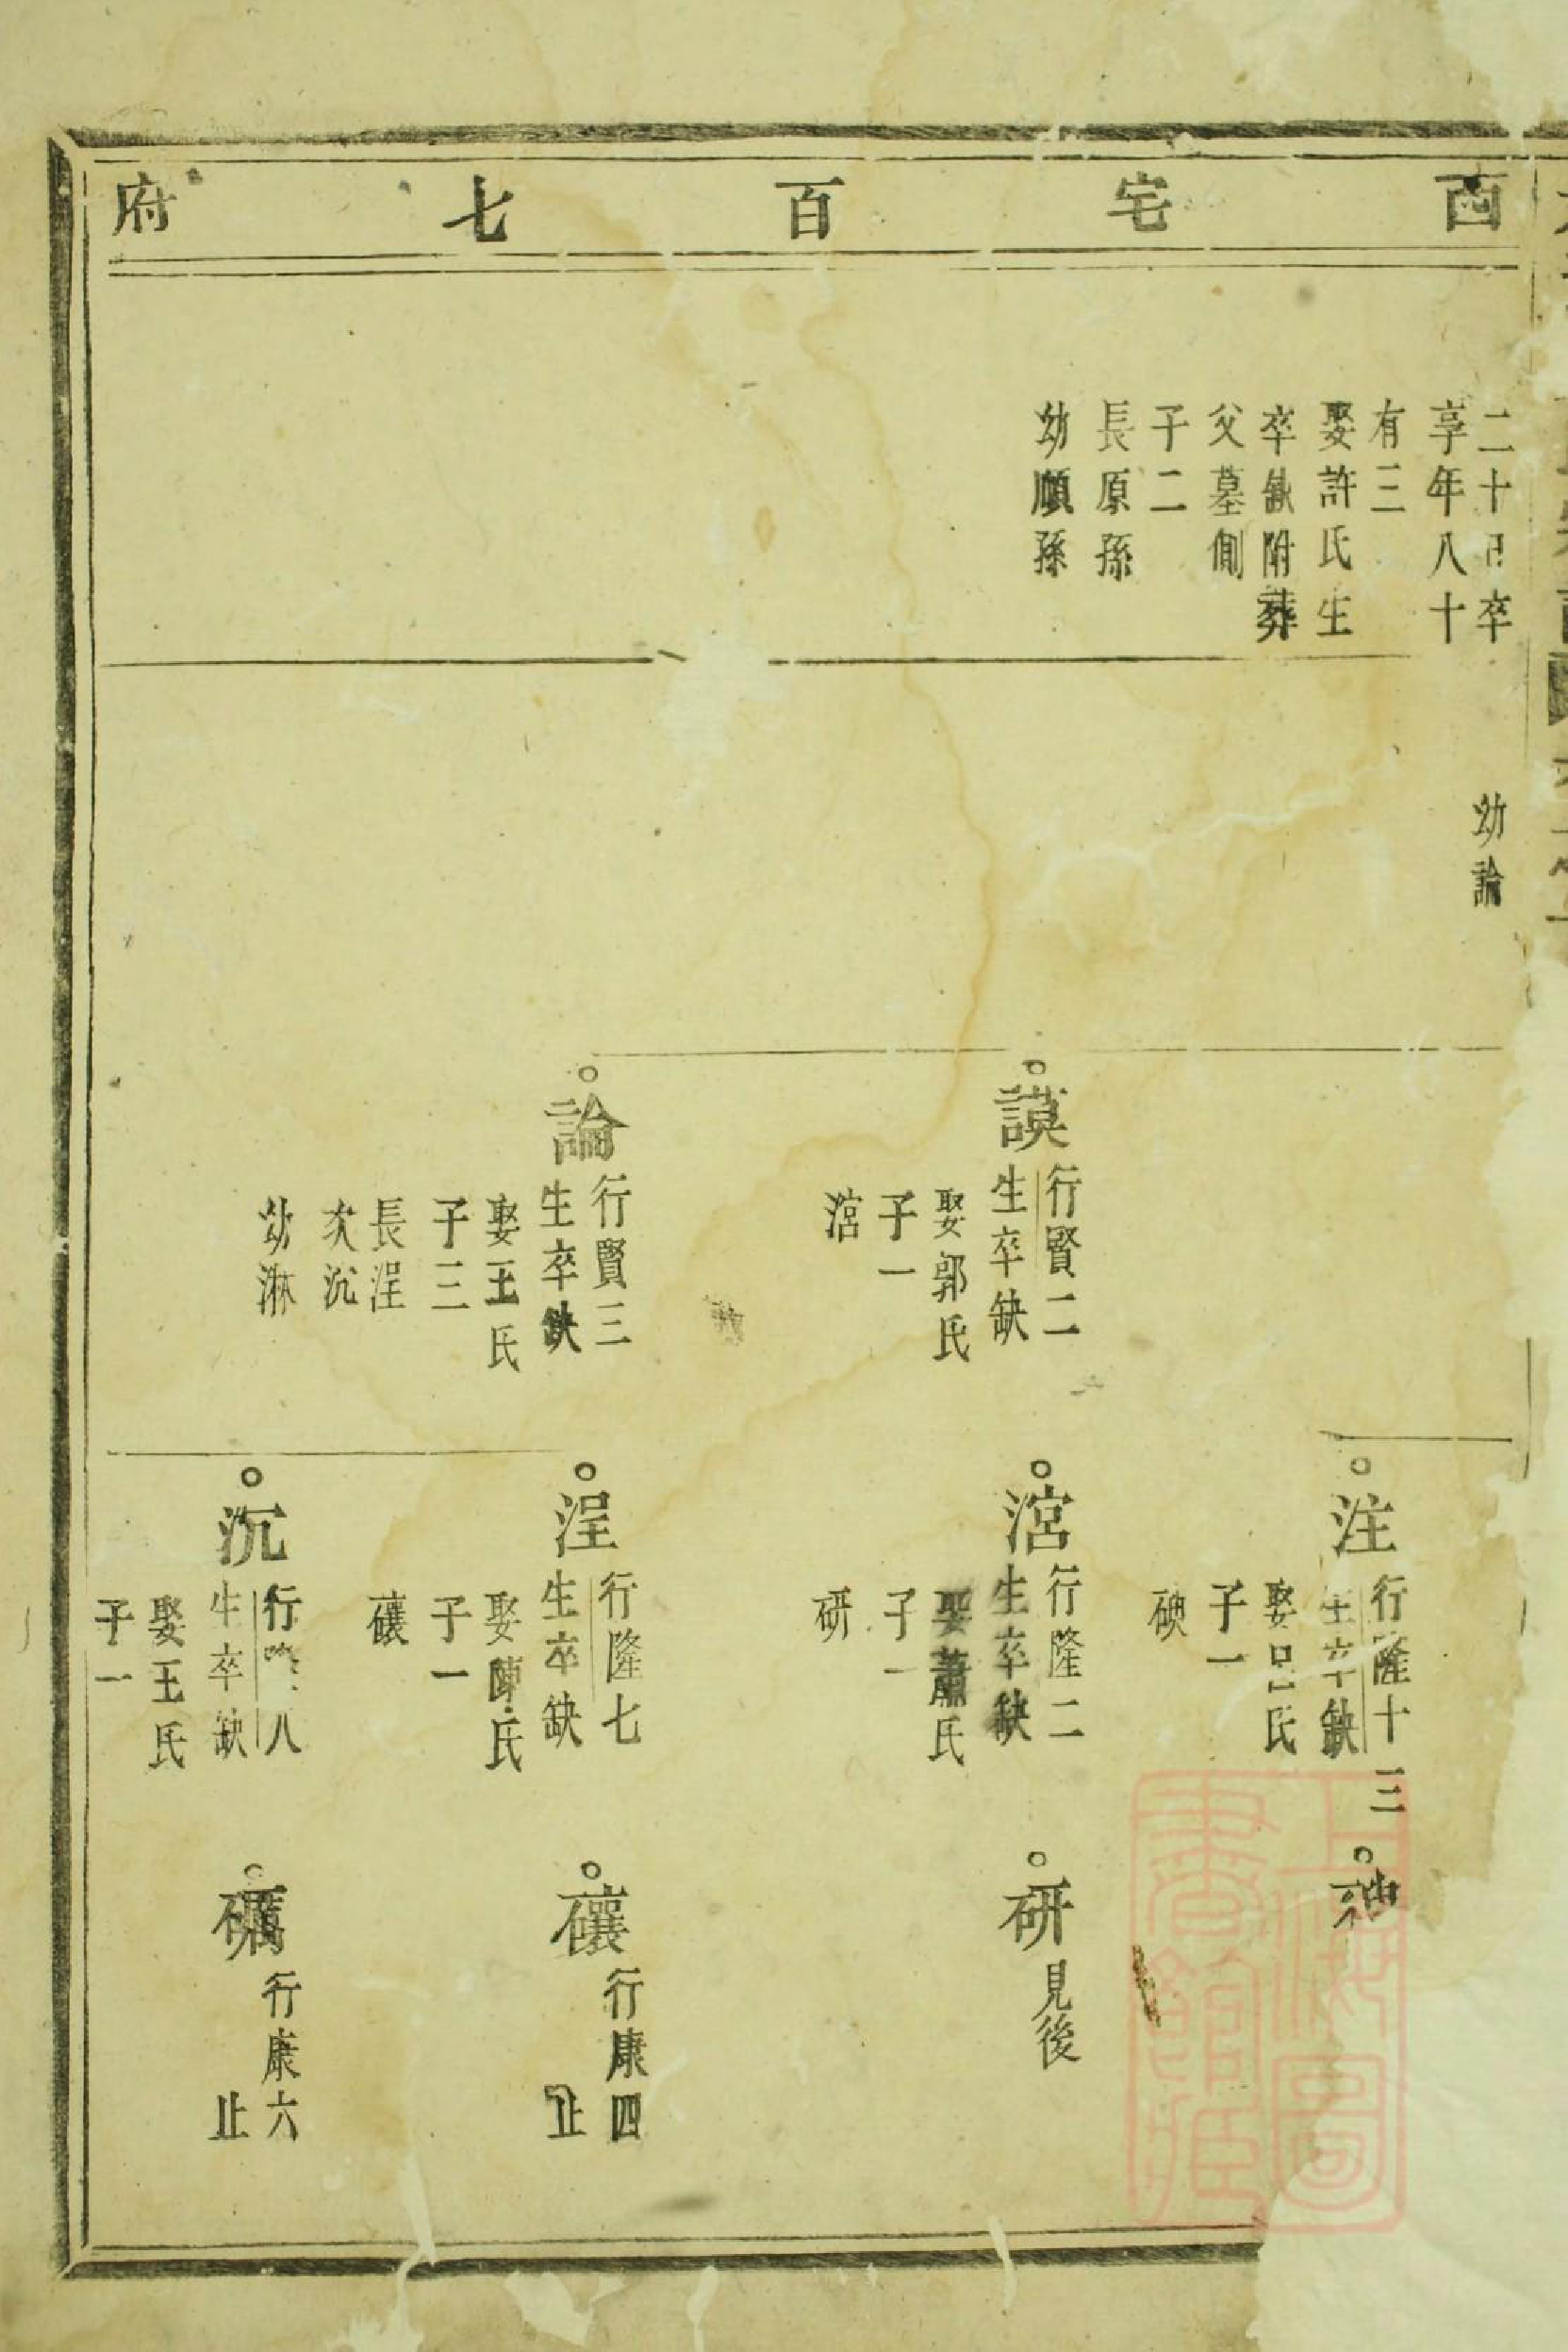 西宅百七府
二十日卒
享年八十
有三
娶許氏生
卒缺附葬
父墓側
子二
長原孫
幼順孫
幼論
謨
行賢二
生卒缺
娶郭氏
子一
涫
論
行賢三
生卒缺
娶王氏
子三
長浧
次沉
幼淋
注
行隆十三
生卒缺
娶呂氏
子一
碘
涫
行隆二
生卒缺
娶蕭氏
子一
研
浧
行隆七
生卒缺
娶陳氏
子一
礦
沉
行隆八
生卒缺
娶王氏
子一
研
見後
行康四
止
礪
行康六
止
上海圖書館藏